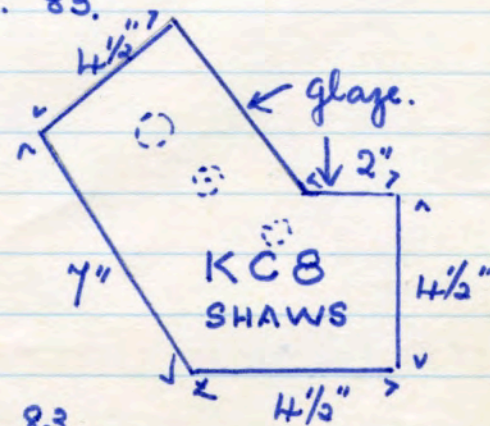 83.
4½"
glaze.
2"
KC8
SHAWS
7"
4½"
4½"
83